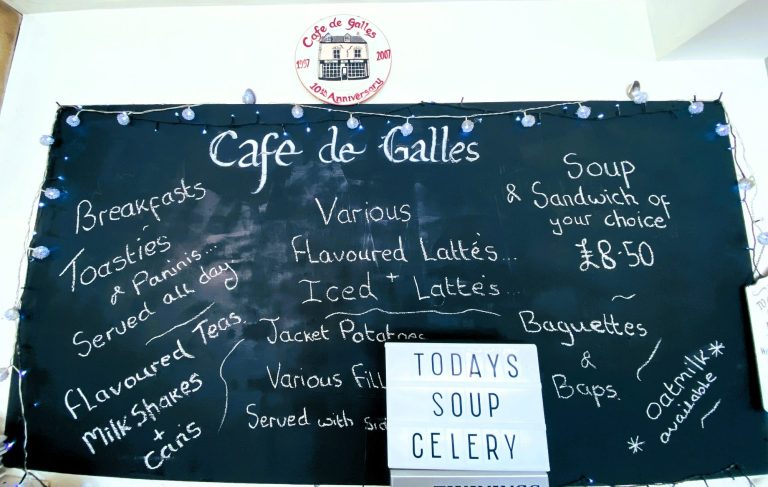 Cafe de Galles
1997 2007
10th Anniversary
Cafe de Galles
Breakfasts
Toasties
& Paninis...
Served all day
Flavoured Teas
Milkshakes
+
Cans
Various
Flavoured Lattés...
+
Iced Lattés...
Jacket Potatoes
Various Fill
Served with sid
Soup
& Sandwich of
your choice
£8.50
Baguettes
&
Baps.
* Oatmilk *
available
TODAYS
SOUP
CELERY